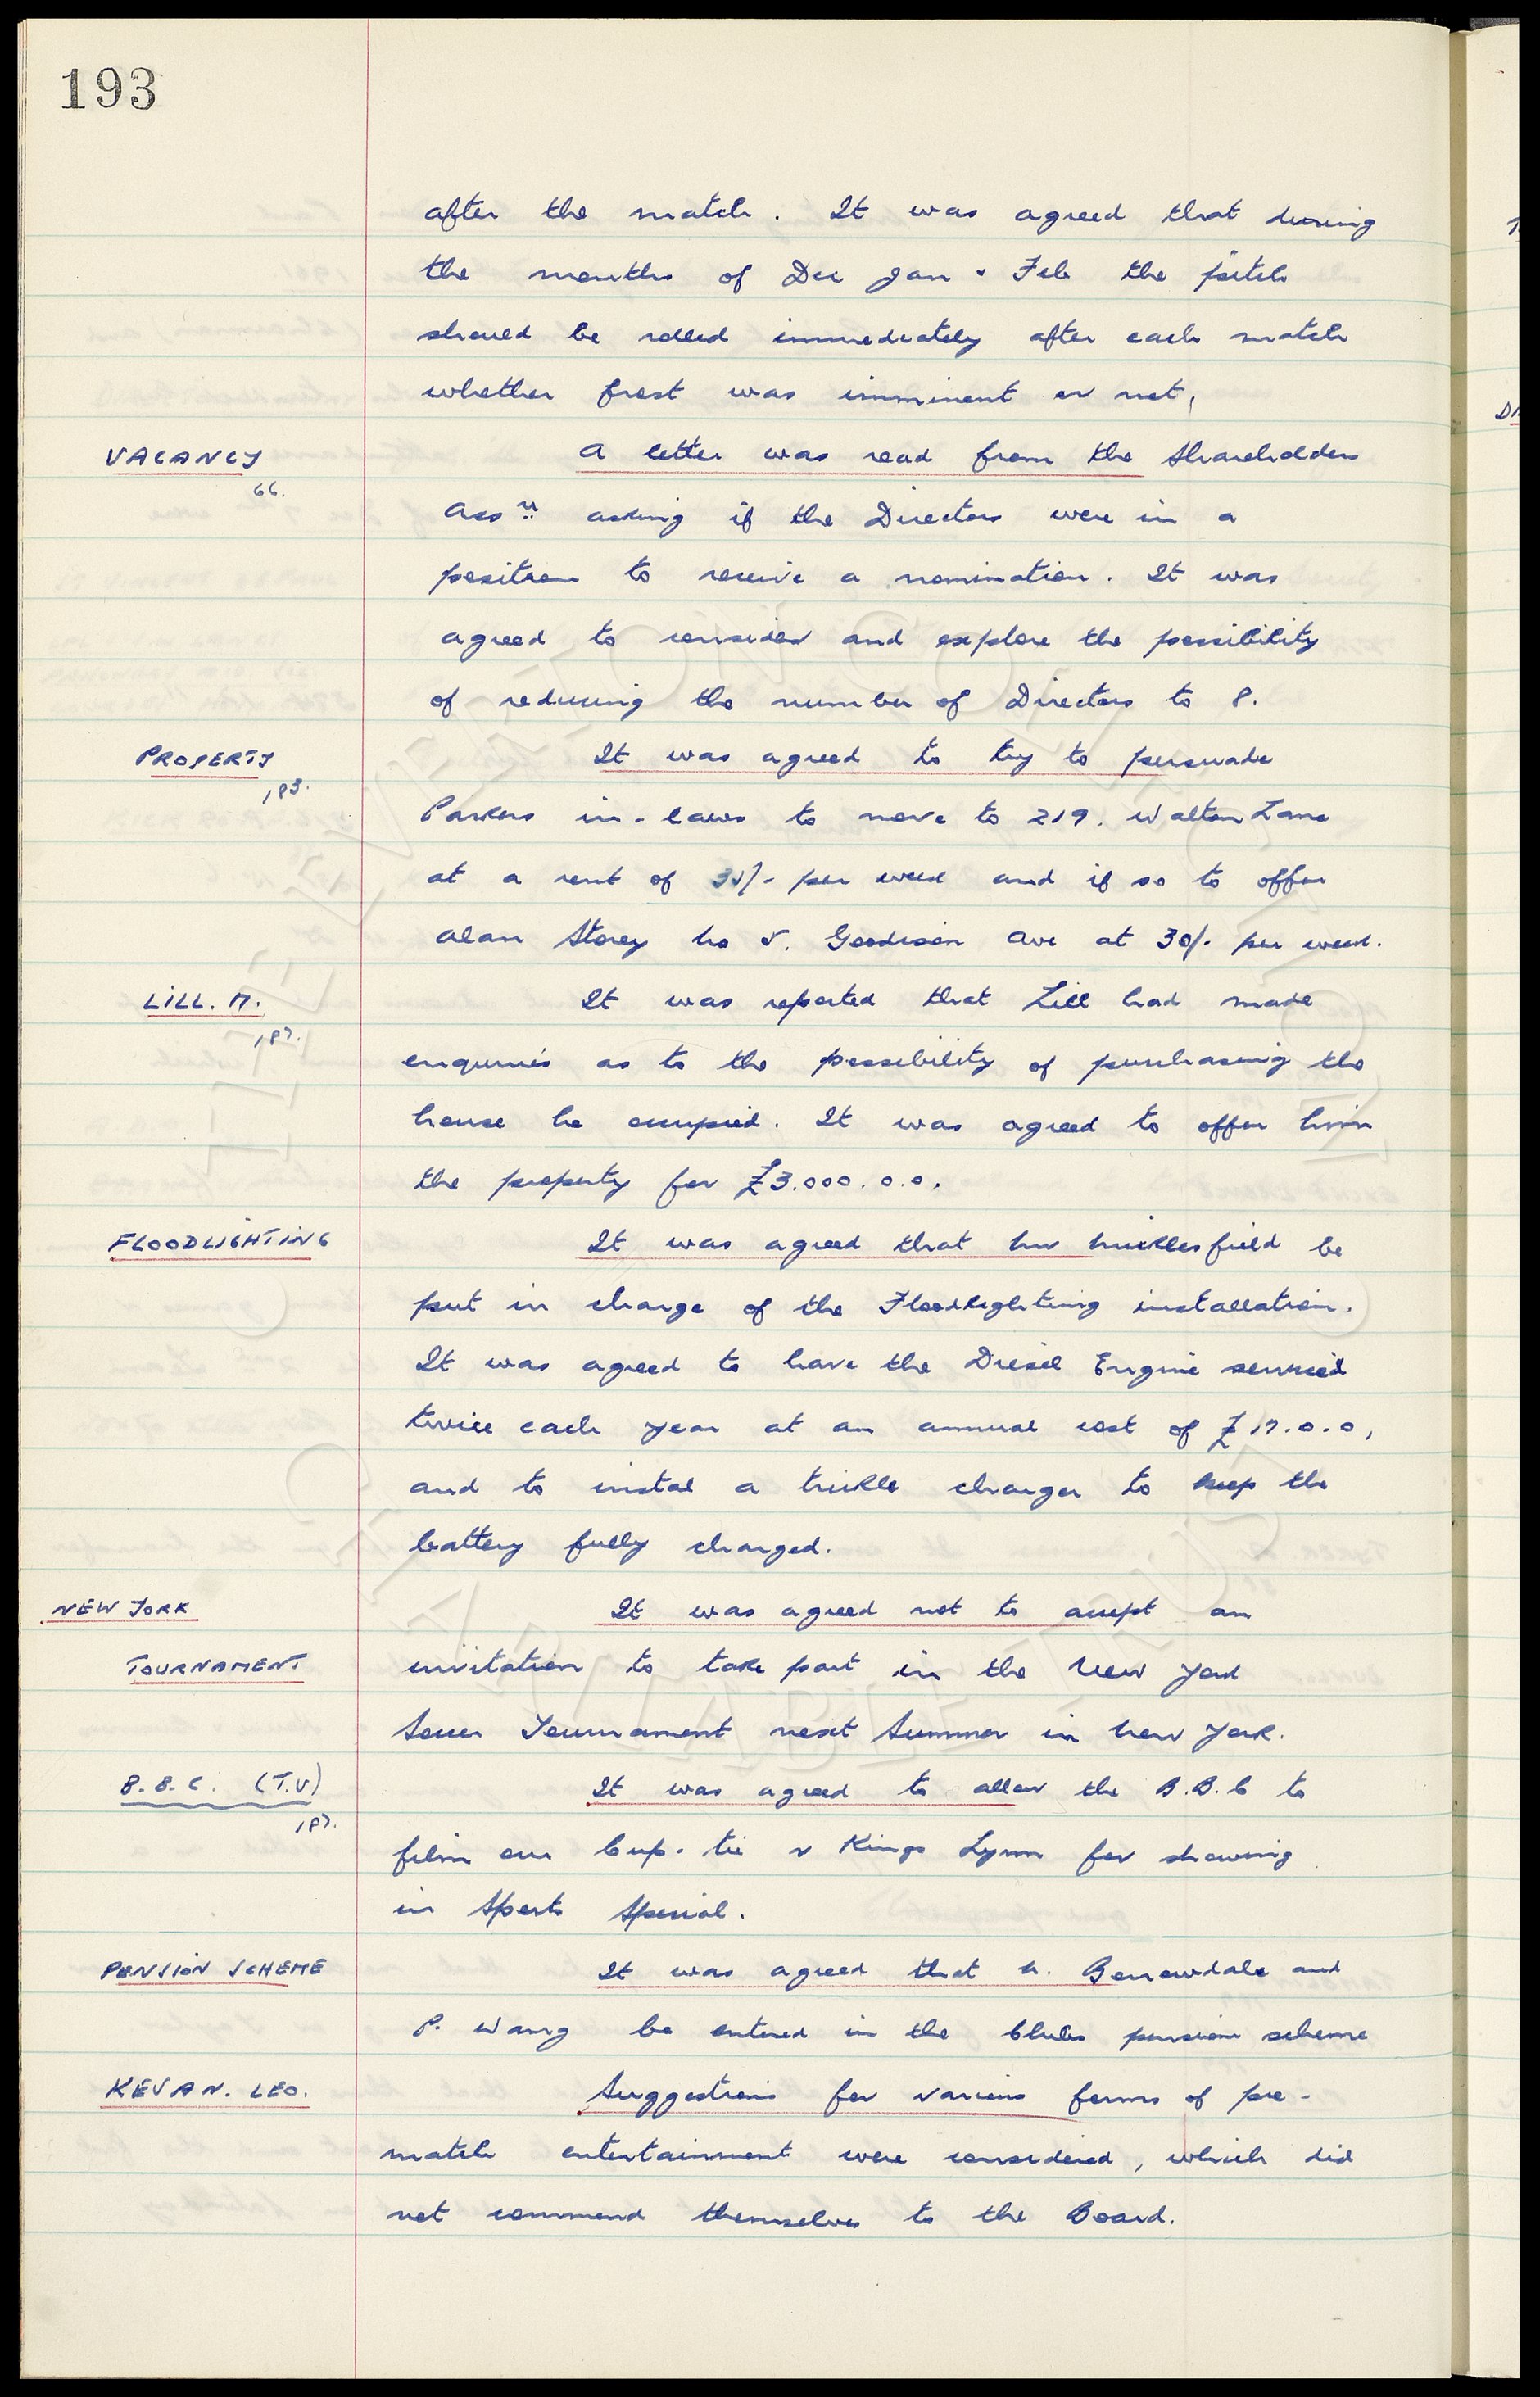 193
after the match. It was agreed that during
the months of Dec Jan & Feb the pitch
should be rolled immediately after each match
whether frost was imminent or not.
VACANCY
66.
A letter was read from the Shareholders
Assn asking if the Directors were in a
position to receive a nomination. It was
agreed to consider and explore the possibility
of reducing the number of Directors to 8.
PROPERTY
183.
It was agreed to try to persuade
Parkers in-laws to move to 219. Walton Lane
at a rent of 30/- per week and if so to offer
Alan Storey No 5. Goodison Ave at 30/- per week.
LILL. M.
187.
It was reported that Lill had made
enquiries as to the possibility of purchasing the
house he occupied. It was agreed to offer him
the property for £3.000.0.0.
FLOODLIGHTING
It was agreed that Mr Micklesfield be
put in charge of the Floodlighting installation.
It was agreed to have the Diesel Engine serviced
twice each year at an annual cost of £17.0.0,
and to instal a trickle charger to keep the
battery fully charged.
NEW YORK
TOURNAMENT
It was agreed not to accept an
invitation to take part in the New York
Soccer Tournament next Summer in New York.
B.B.C. (T.V)
187.
It was agreed to allow the B.B.C to
film our Cup-tie v Kings Lynn for showing
in Sports Special.
PENSION SCHEME
It was agreed that W. Borrowdale and
P. Waring be entered in the Clubs pension scheme
KEVAN. LEO.
Suggestions for various forms of pre-
match entertainment were considered, which did
not commend themselves to the Board.